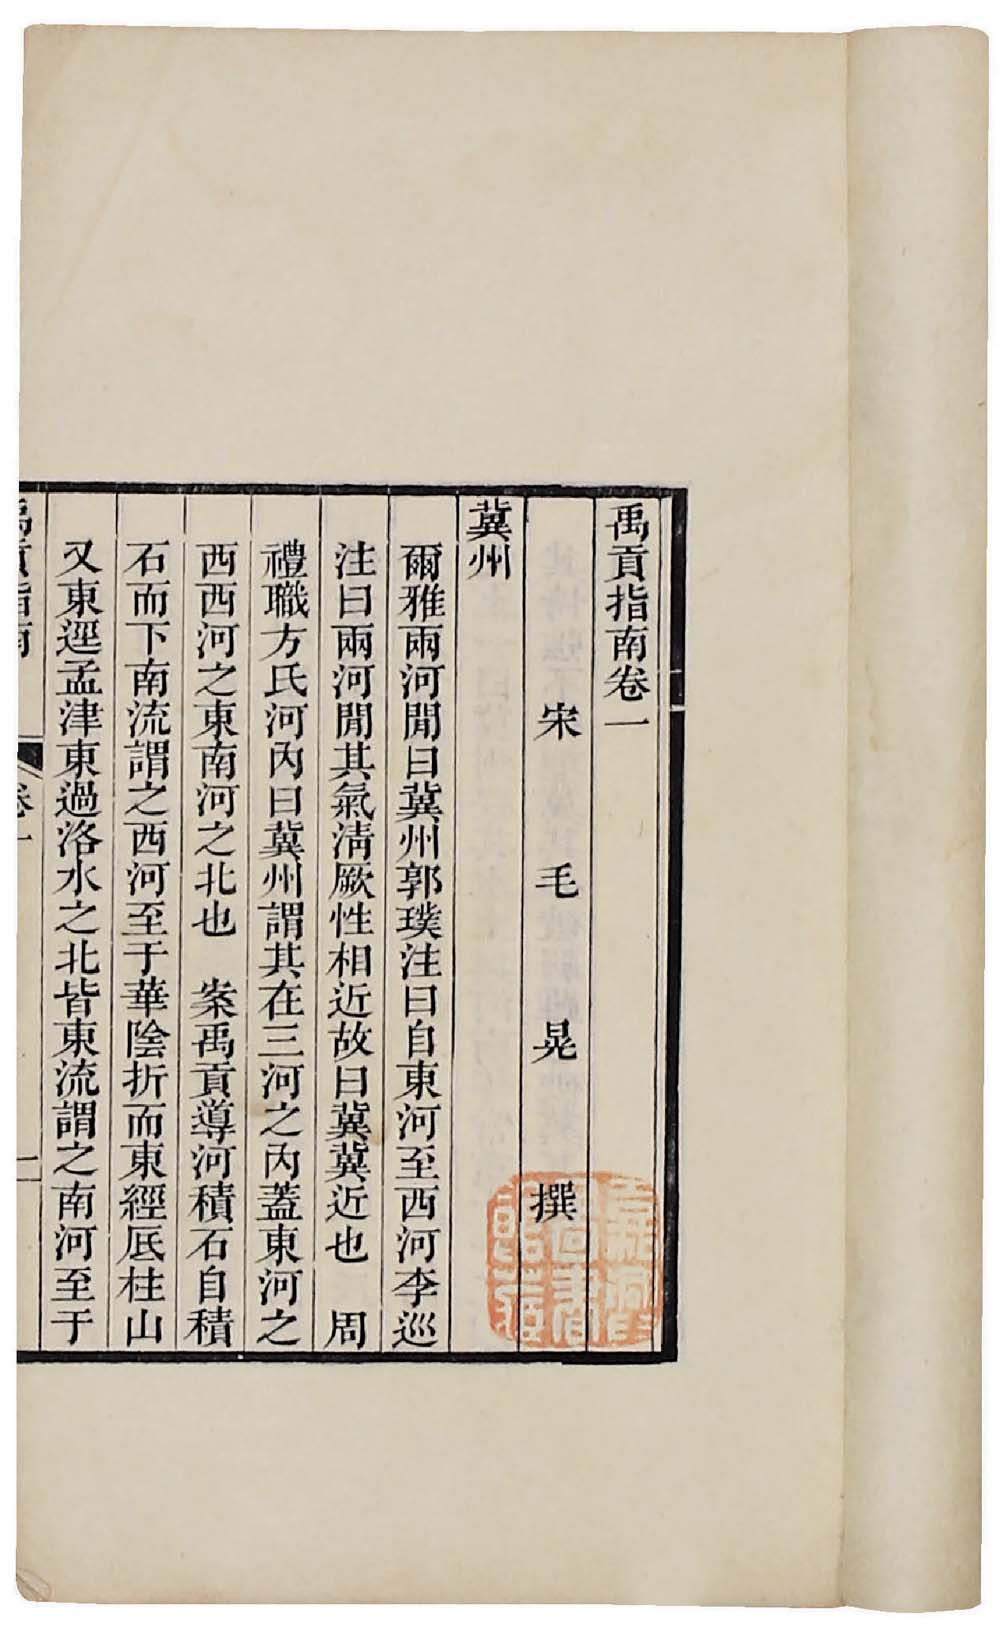 禹貢指南卷一
宋 毛 晃 撰
冀州
爾雅兩河閒曰冀州郭璞注曰自東河至西河李巡
注曰兩河閒其氣清厥性相近故曰冀冀近也 周
禮職方氏河內曰冀州謂其在三河之內蓋東河之
西西河之東南河之北也 案禹貢導河積石自積
石而下南流謂之西河至于華陰折而東經厎柱山
又東逕孟津東過洛水之北皆東流謂之南河至于
禹貢指南 卷一 一